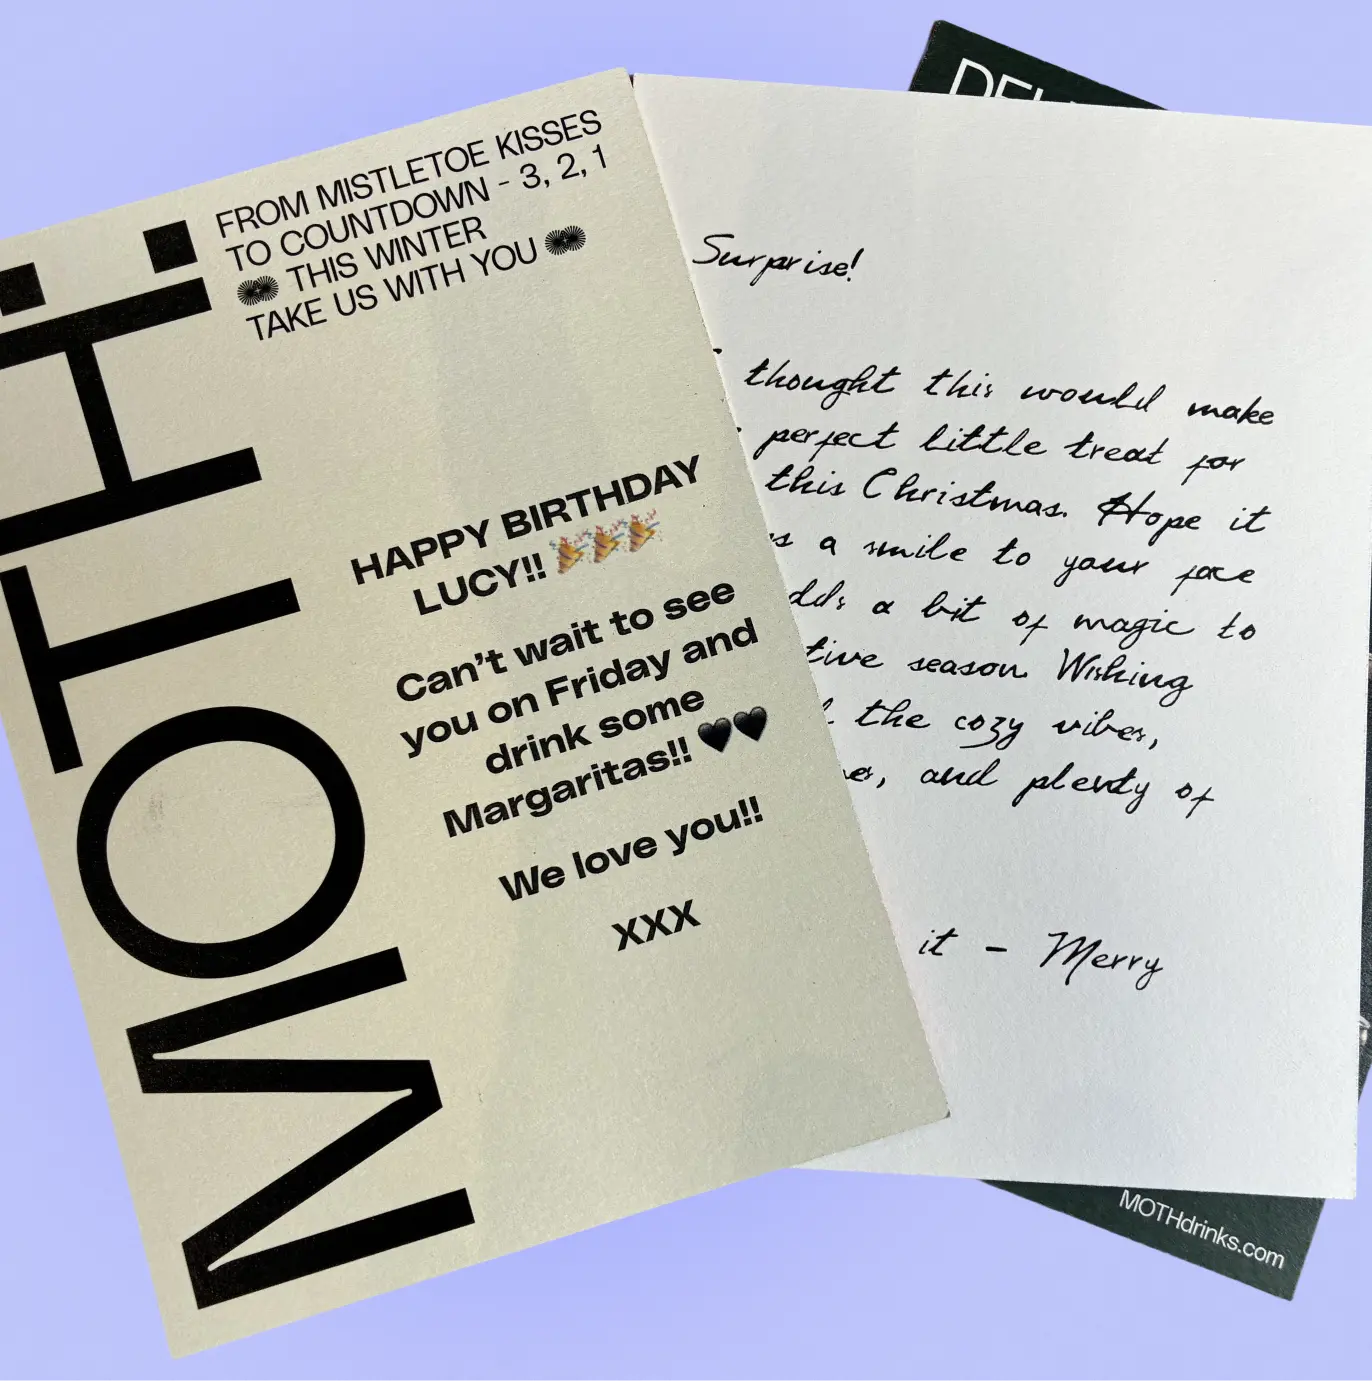 MOTH:
FROM MISTLETOE KISSES
TO COUNTDOWN - 3, 2, 1
THIS WINTER
TAKE US WITH YOU
HAPPY BIRTHDAY
LUCY!! 🎉🎉🎉
Can't wait to see
you on Friday and
drink some
Margaritas!! 🖤🖤
We love you!!
XXX
Surprise!
thought this would make
perfect little treat for
this Christmas. Hope it
a smile to your face
a bit of magic to
season. Wishing
the cozy vibes,
and plenty of
it - Merry
MOTHdrinks.com